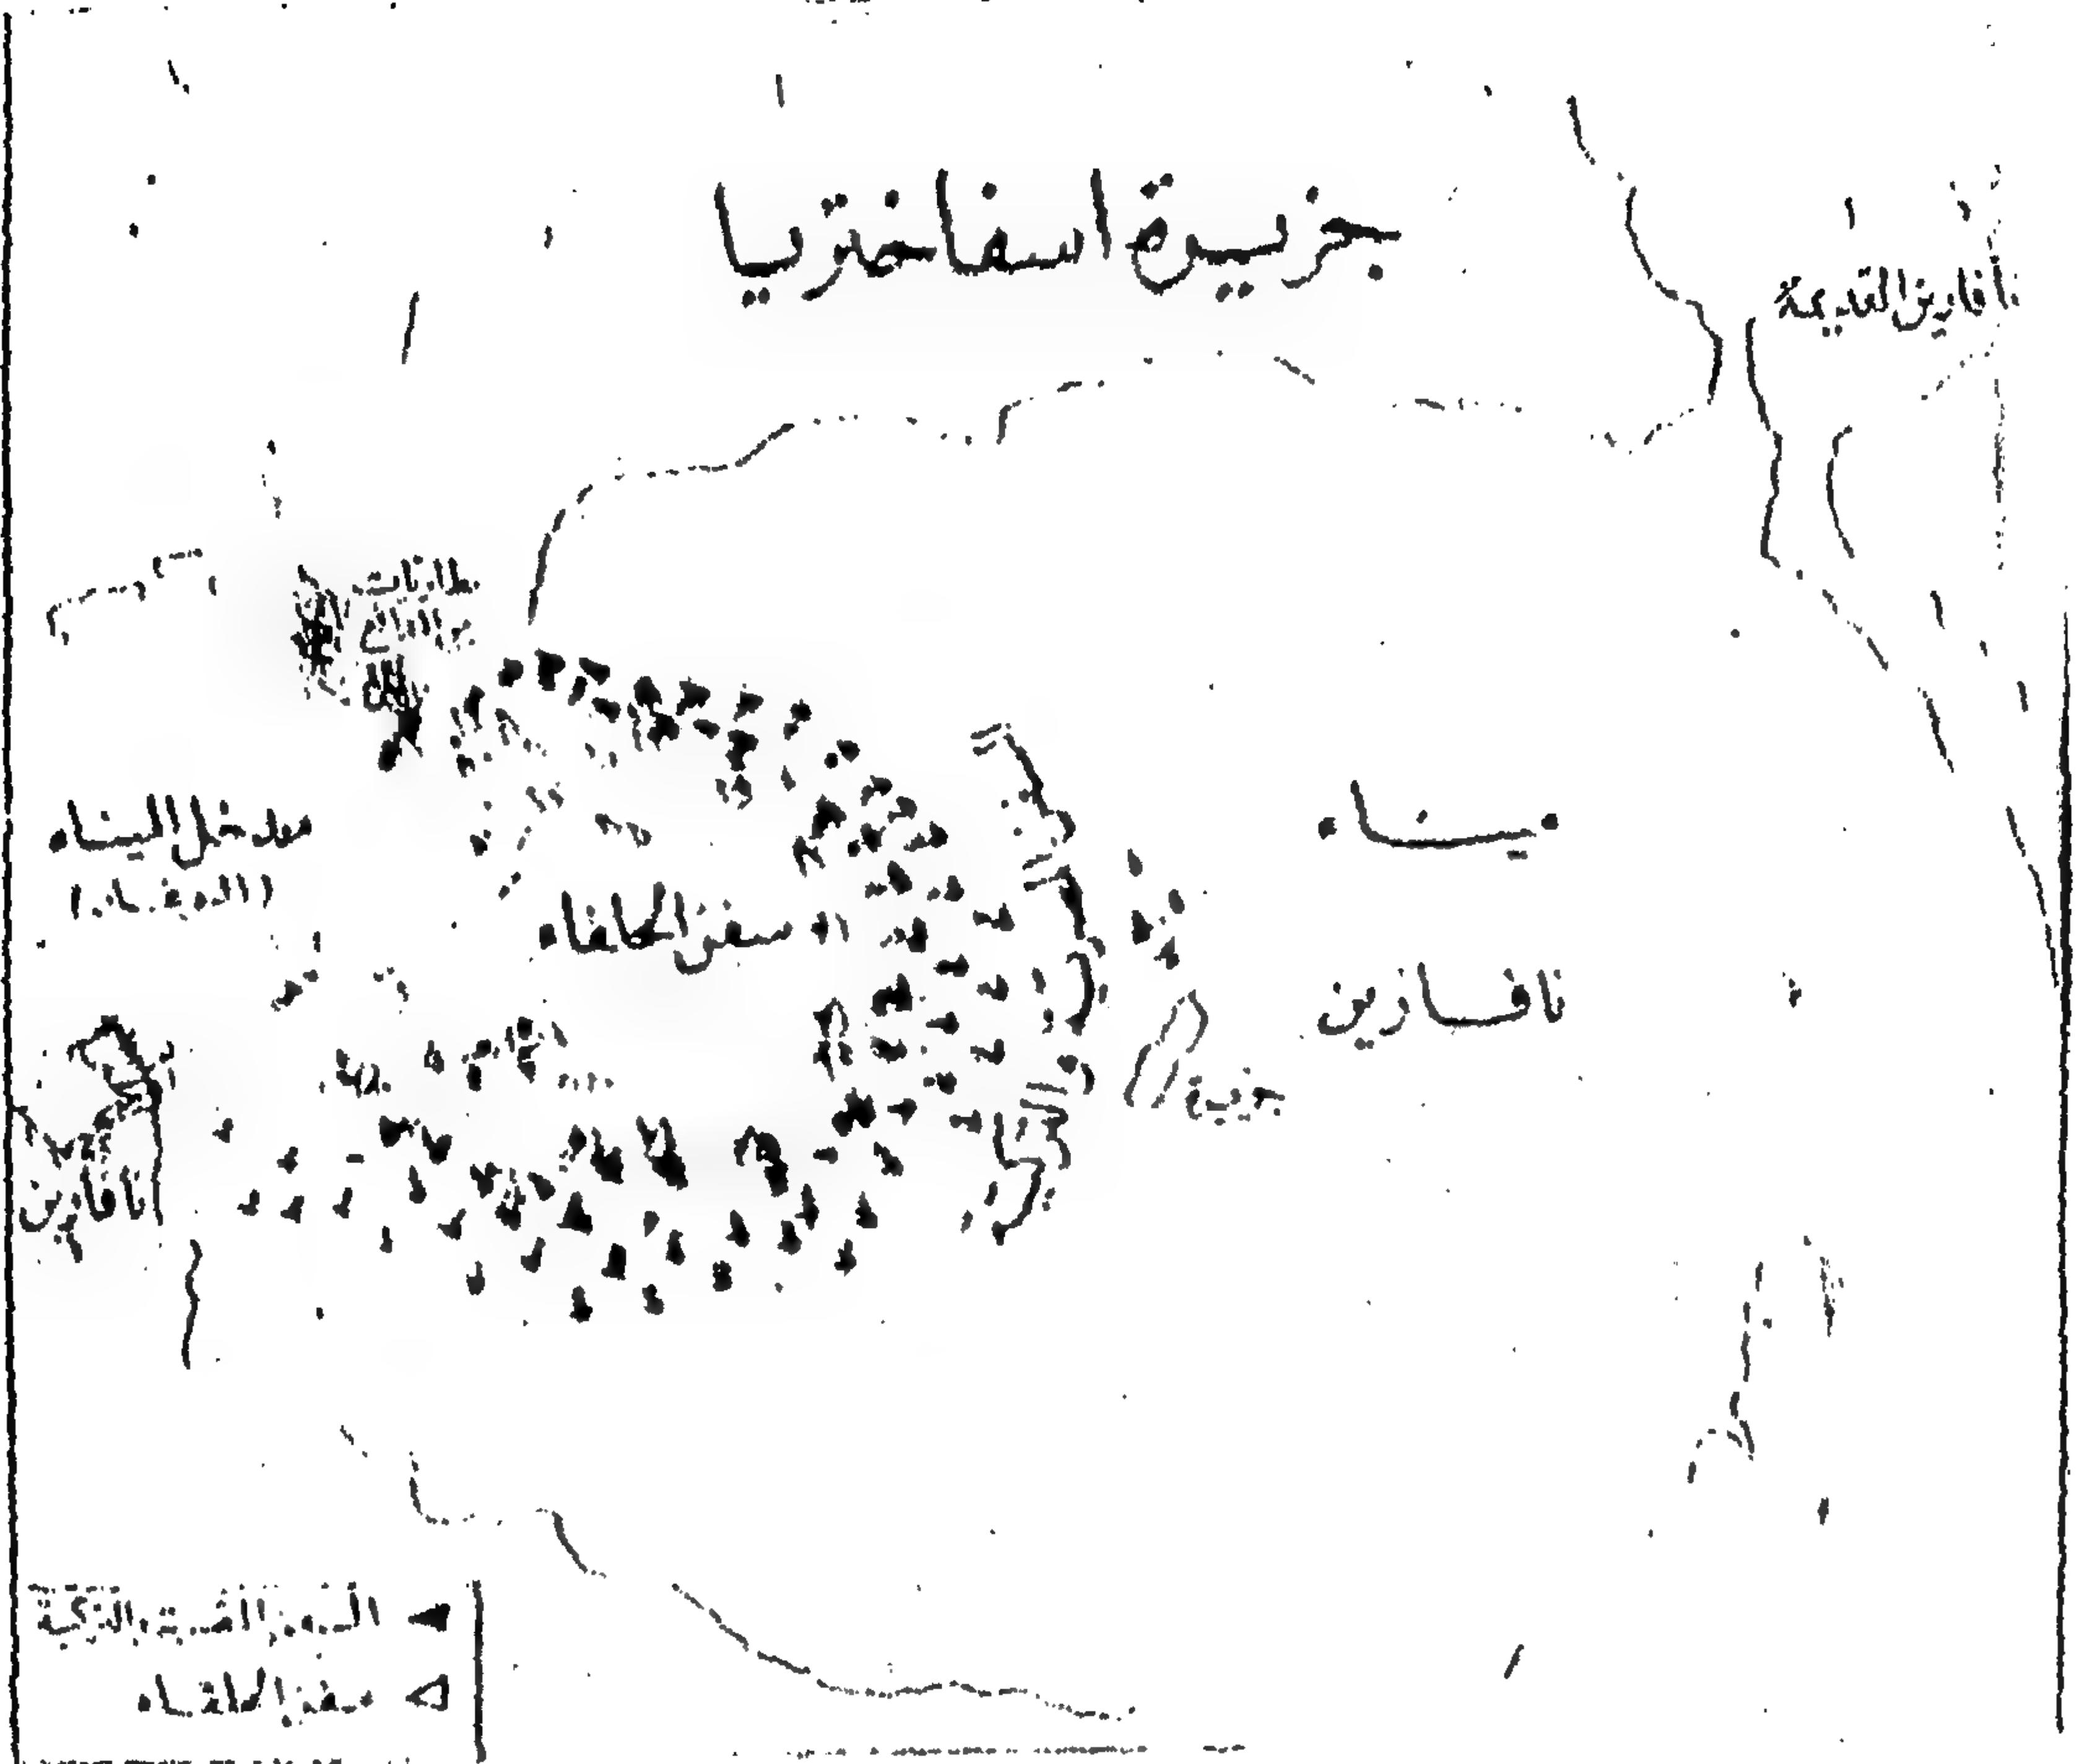 جزيرة اسفاختريا
نافارين القديمة
مدخل الميناء
ميناء
سفن الحلفاء
نافارين
جزيرة
نافارين
السفن المصرية والتركية
سفن الحلفاء